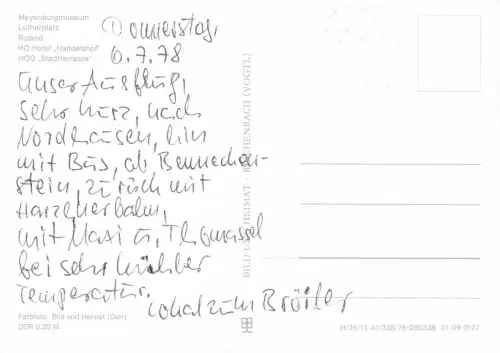 Meyenburgmuseum
Lutherplatz
Roland
HO-Hotel „Handelshof"
HOG „Stadtterrasse"
Donnerstag,
6.7.78
Unser Ausflug,
sehr kurz, nach
Nordhausen, hin
mit Bus, ab Bennecken-
stein, zurück mit
Harzquerbahn,
mit Maxi u. Thomassel
bei sehr kühler
Temperatur.
Lokal zum Broiler
Farbfoto: Bild und Heimat (Darr)
DDR 0,20 M
BILD UND HEIMAT · REICHENBACH (VOGTL)
III/26/13 A1/338/78-280338 01 09 0127